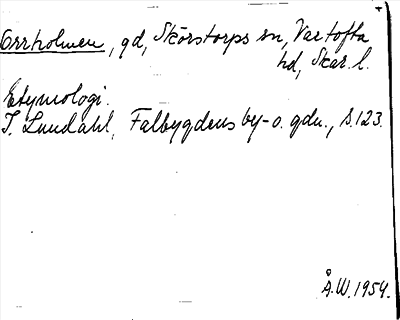 Orrholmen, gd, Skörstorps sn, Vartofta
hd, Skar. l.
Etymologi.
I. Lundahl, Falbygdens by- o. gdn., s. 123.
Å. W. 1954.